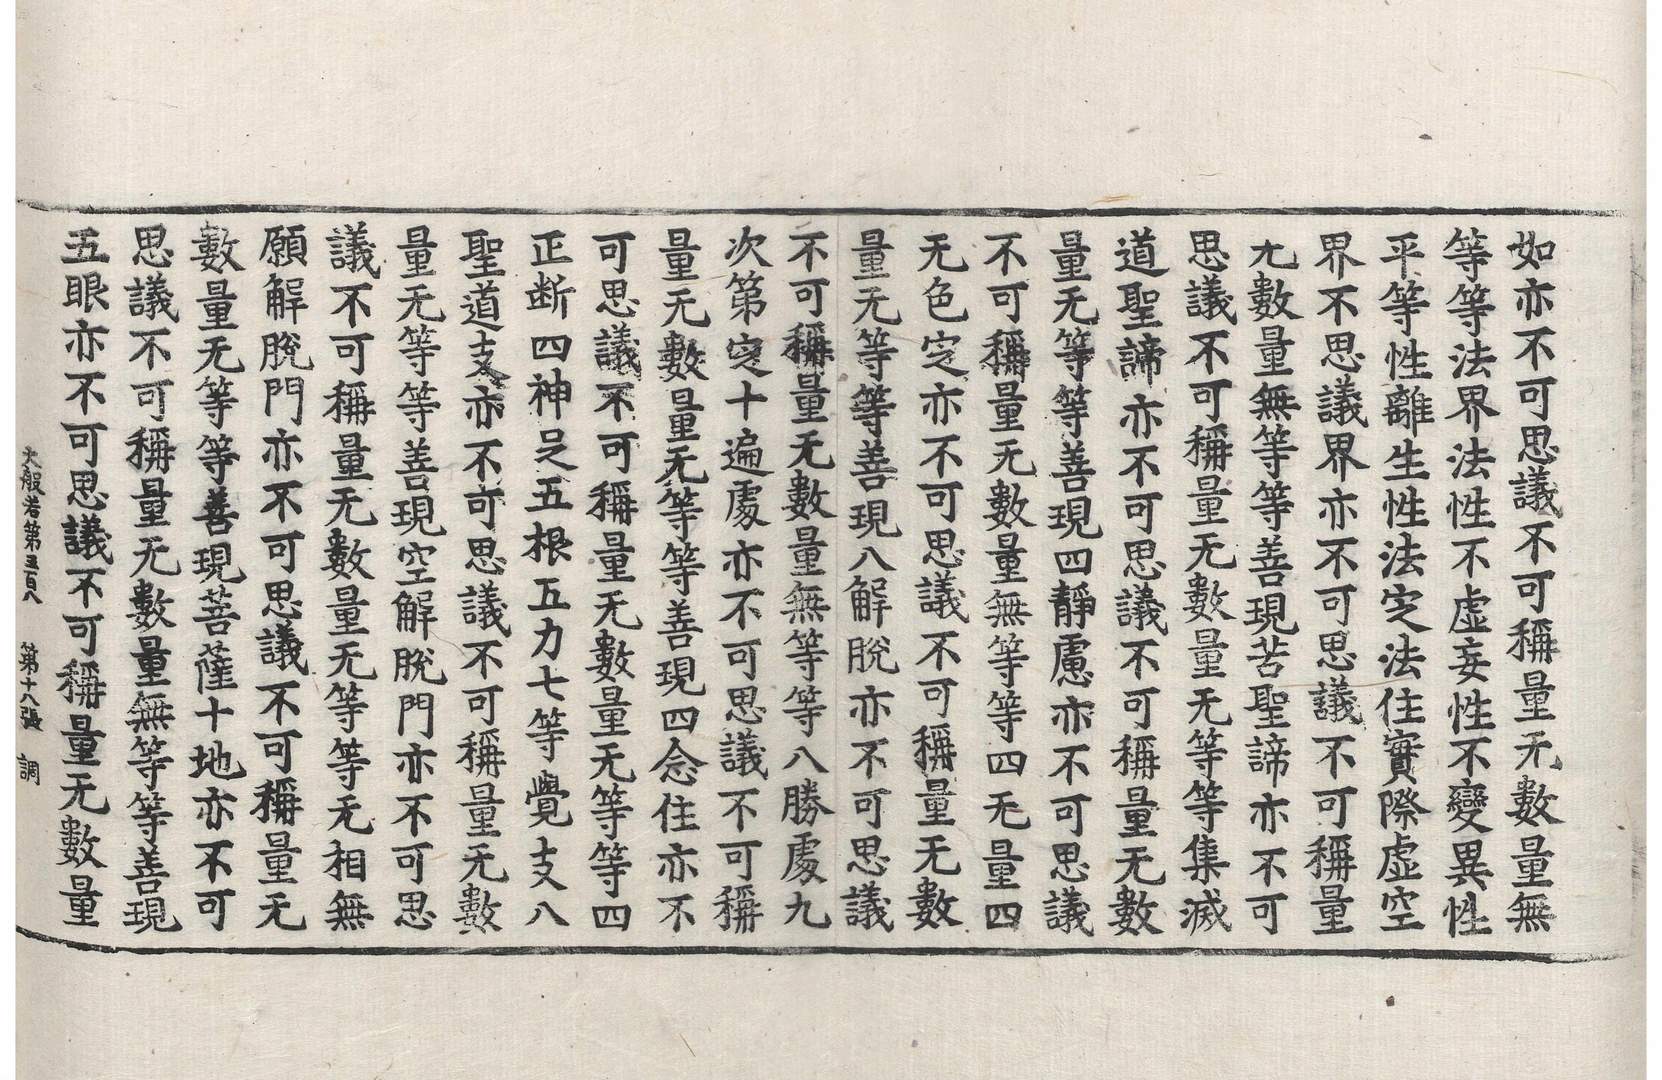 如亦不可思議不可稱量无數量無
等等法界法性不虛妄性不變異性
平等性離生性法定法住實際虛空
界不思議界亦不可思議不可稱量
无數量無等等善現苦聖諦亦不可
思議不可稱量无數量无等等集滅
道聖諦亦不可思議不可稱量无數
量无等等善現四靜慮亦不可思議
不可稱量无數量無等等四无量四
无色定亦不可思議不可稱量无數
量无等等善現八解脫亦不可思議
不可稱量无數量無等等八勝處九
次第定十遍處亦不可思議不可稱
量无數量无等等善現四念住亦不
可思議不可稱量无數量无等等四
正断四神足五根五力七等覺支八
聖道支亦不可思議不可稱量无數
量无等等善現空解脫門亦不可思
議不可稱量无數量无等等无相無
願解脫門亦不可思議不可稱量无
數量无等等善現菩薩十地亦不可
思議不可稱量无數量無等等善現
五眼亦不可思議不可稱量无數量
大般若第五百八 第十八張 調